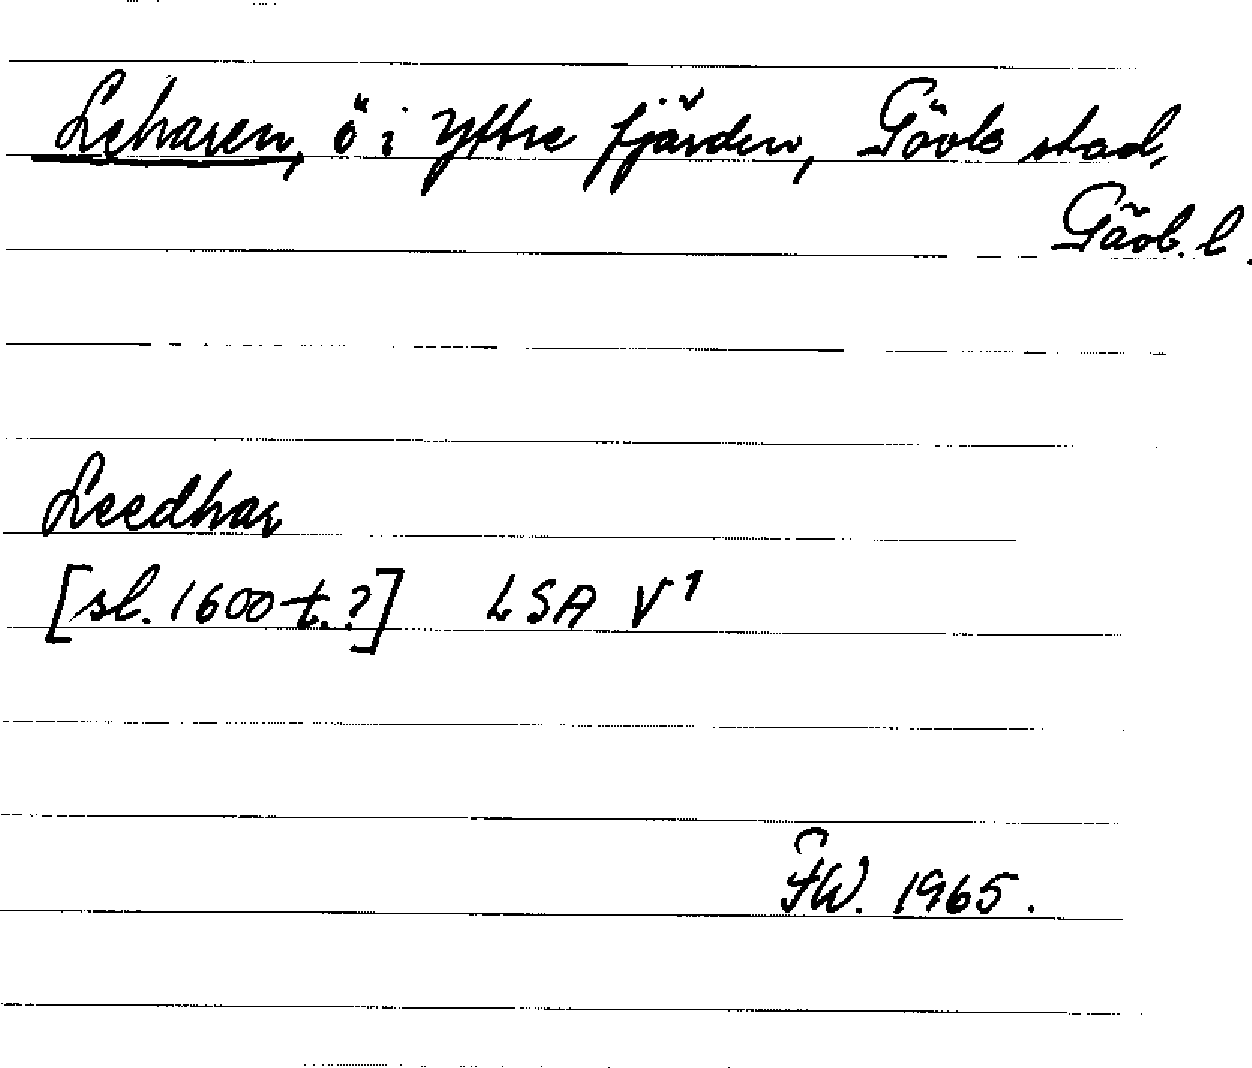 Leharen, ö i Yttre fjärden, Gävle stad,
Gävl. l.
Leedhar
[sl. 1600-t.?] LSA V1
FW. 1965.